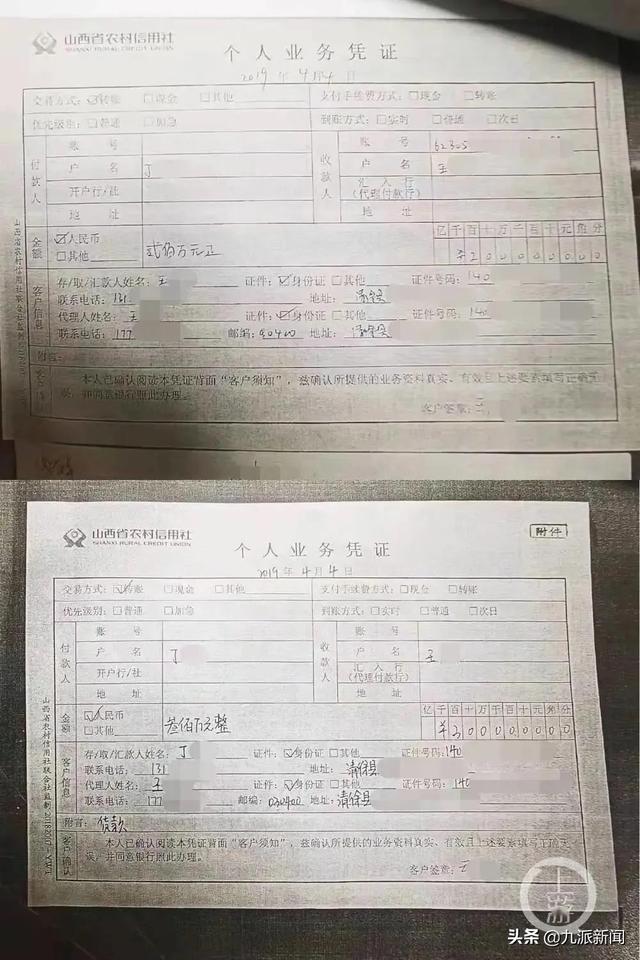 山西省农村信用社
SHANXI RURAL CREDIT UNION
个人业务凭证
2019年4月4日
交易方式：☑转账 □现金 □其他 支付手续费方式：□现金 □转账
优先级别：□普通 □加急 到账方式：□实时 □普通 □次日
付款人 账号 收款人 账号 62305
户名 丁 户名 王
开户行/社 汇入行（代理付款行）
地址 地址
金额 ☑人民币 □其他 贰佰万元正 亿千百十万千百十元角分 ¥200000000
客户信息 存/取/汇款人姓名：王 证件：☑身份证 □其他 证件号码：140
联系电话：131 地址：清徐县
代理人姓名：王 证件：☑身份证 □其他 证件号码：140
联系电话：177 邮编： 地址：清徐县
附言：
本人已确认阅读本凭证背面“客户须知”，兹确认所提供的业务资料真实、有效且上述要素填写正确无
误，并同意银行照此办理。
客户签章：王
附件
山西省农村信用社
SHANXI RURAL CREDIT UNION
个人业务凭证
2019年4月4日
交易方式：☑转账 □现金 □其他 支付手续费方式：□现金 □转账
优先级别：□普通 □加急 到账方式：□实时 □普通 □次日
付款人 账号 收款人 账号
户名 丁 户名 王
开户行/社 汇入行（代理付款行）
地址 地址
金额 ☑人民币 □其他 叁佰万元整 亿千百十万千百十元角分 ¥300000000
客户信息 存/取/汇款人姓名：丁 证件：☑身份证 □其他 证件号码：140
联系电话：131 地址：清徐县
代理人姓名：王 证件：☑身份证 □其他 证件号码：140
联系电话：177 邮编：030400 地址：清徐县
附言：货款
客户确认 本人已确认阅读本凭证背面“客户须知”，兹确认所提供的业务资料真实、有效且上述要素填写正确无
误，并同意银行照此办理。
客户签章：王
山西省农村信用社联合社监制
上游
头条 @九派新闻